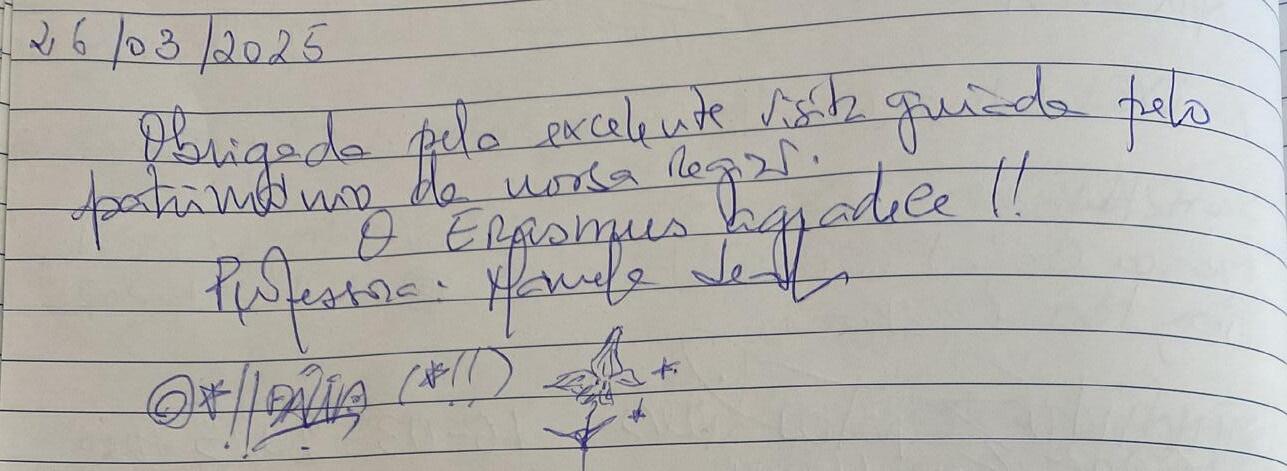 26/03/2025
Obrigada pela excelente visita guiada pelo
património da nossa Região.
O Erasmus agradece!!
Professora: